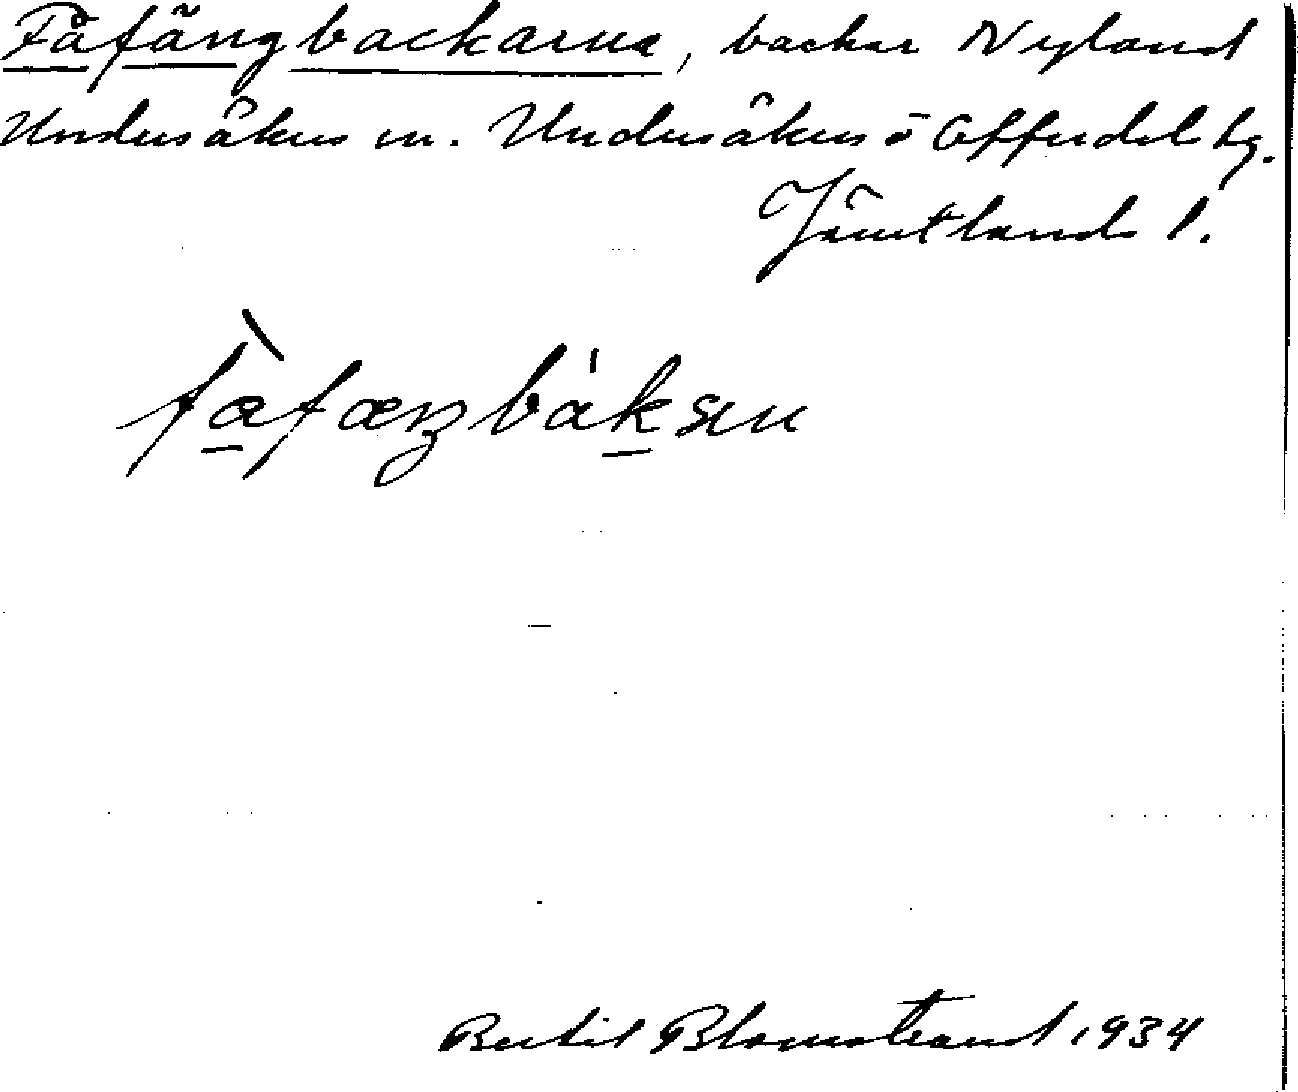 Fåfängbackarna, backar Nyland
Undersåkers sn. Undersåkers o Offerdals tg.
Jämtlands l.
Bertil Blomstrand 1934